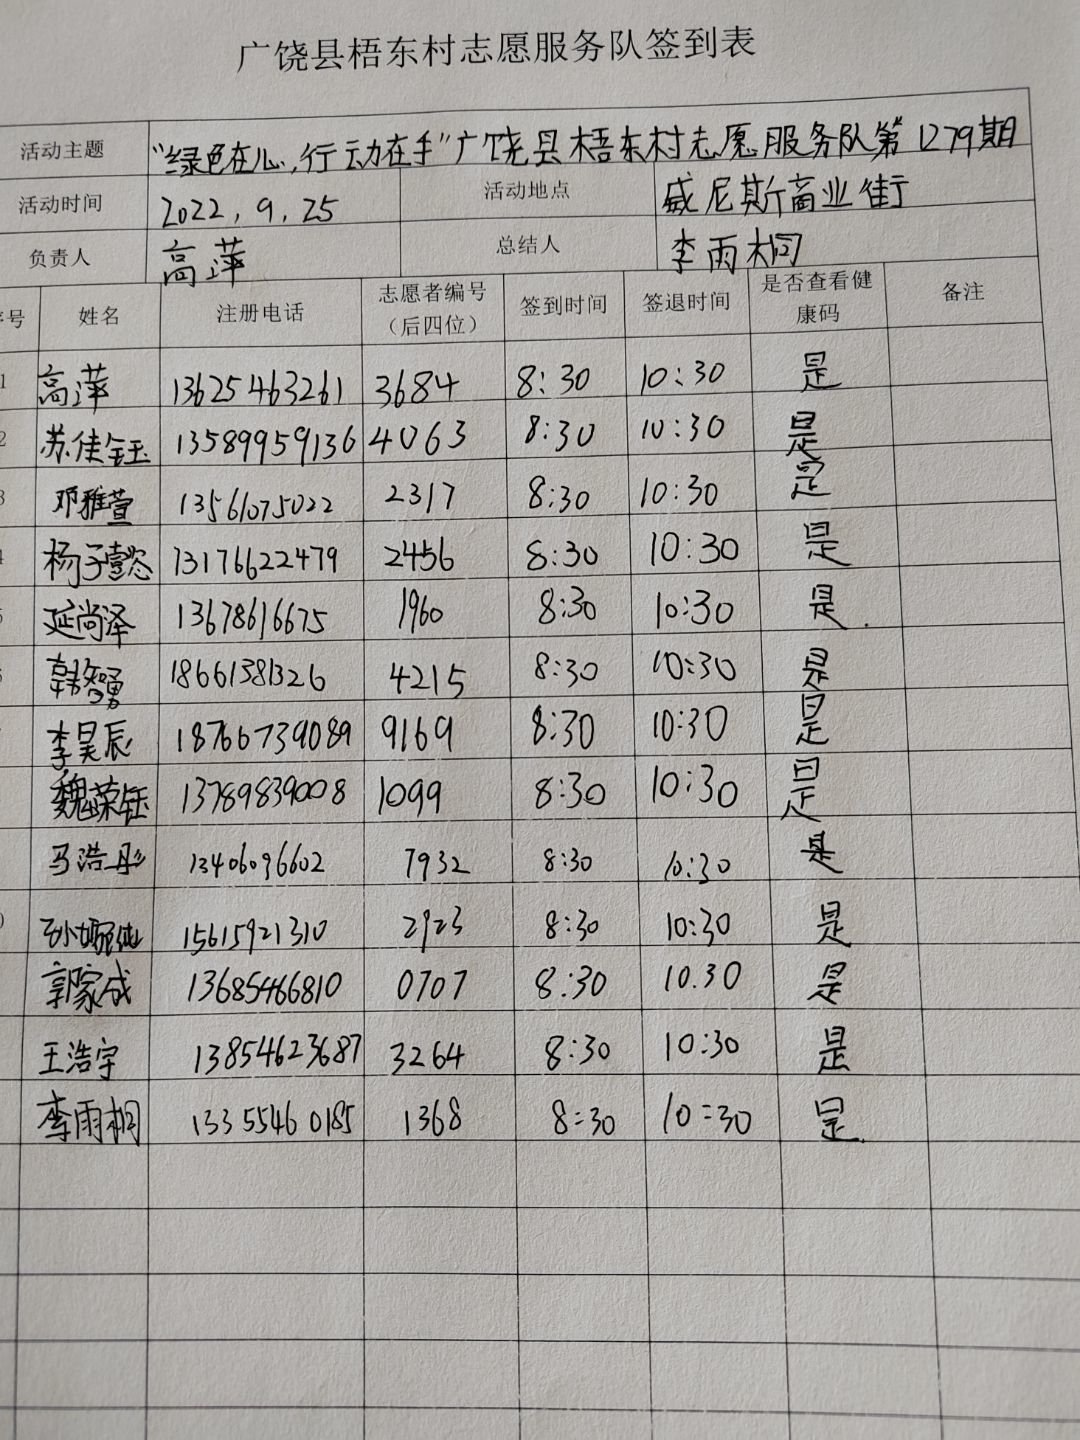 广饶县梧东村志愿服务队签到表
活动主题 "绿色在心,行动在手"广饶县梧东村志愿服务队第1279期
活动时间 2022.9.25 活动地点 威尼斯商业街
负责人 高萍 总结人 李雨桐
序号 姓名 注册电话 志愿者编号(后四位) 签到时间 签退时间 是否查看健康码 备注
1 高萍 13625463261 3684 8:30 10:30 是
2 苏佳钰 13589959136 4063 8:30 10:30 是
3 邓雅萱 13561075022 2317 8:30 10:30 是
4 杨子懿 13176622479 2456 8:30 10:30 是
5 延尚泽 13678616675 1960 8:30 10:30 是.
6 韩智勇 18661381326 4215 8:30 10:30 是
李昊辰 18766739089 9169 8:30 10:30 是
魏荣钰 13789839008 1099 8:30 10:30 是
马浩彤 13406096602 7932 8:30 10:30 是
0 孙 15615921310 2923 8:30 10:30 是
郭家成 13685466810 0707 8:30 10.30 是
王浩宇 13854623687 3264 8:30 10:30 是
李雨桐 13355460185 1368 8:30 10:30 是.